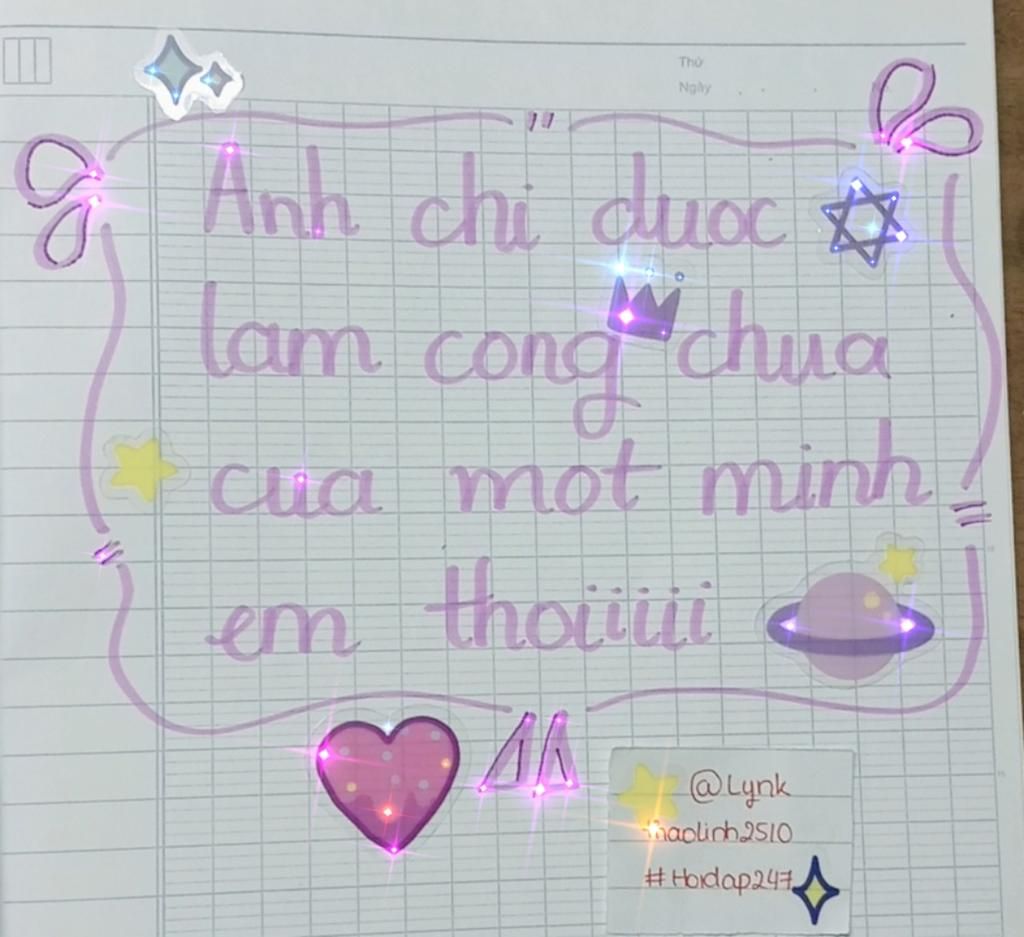 Thứ
Ngày
Anh chi duoc
lam cong chua
cua mot minh
em thoiiiii
@Lynk
thaolinh2510
#Hoidap247